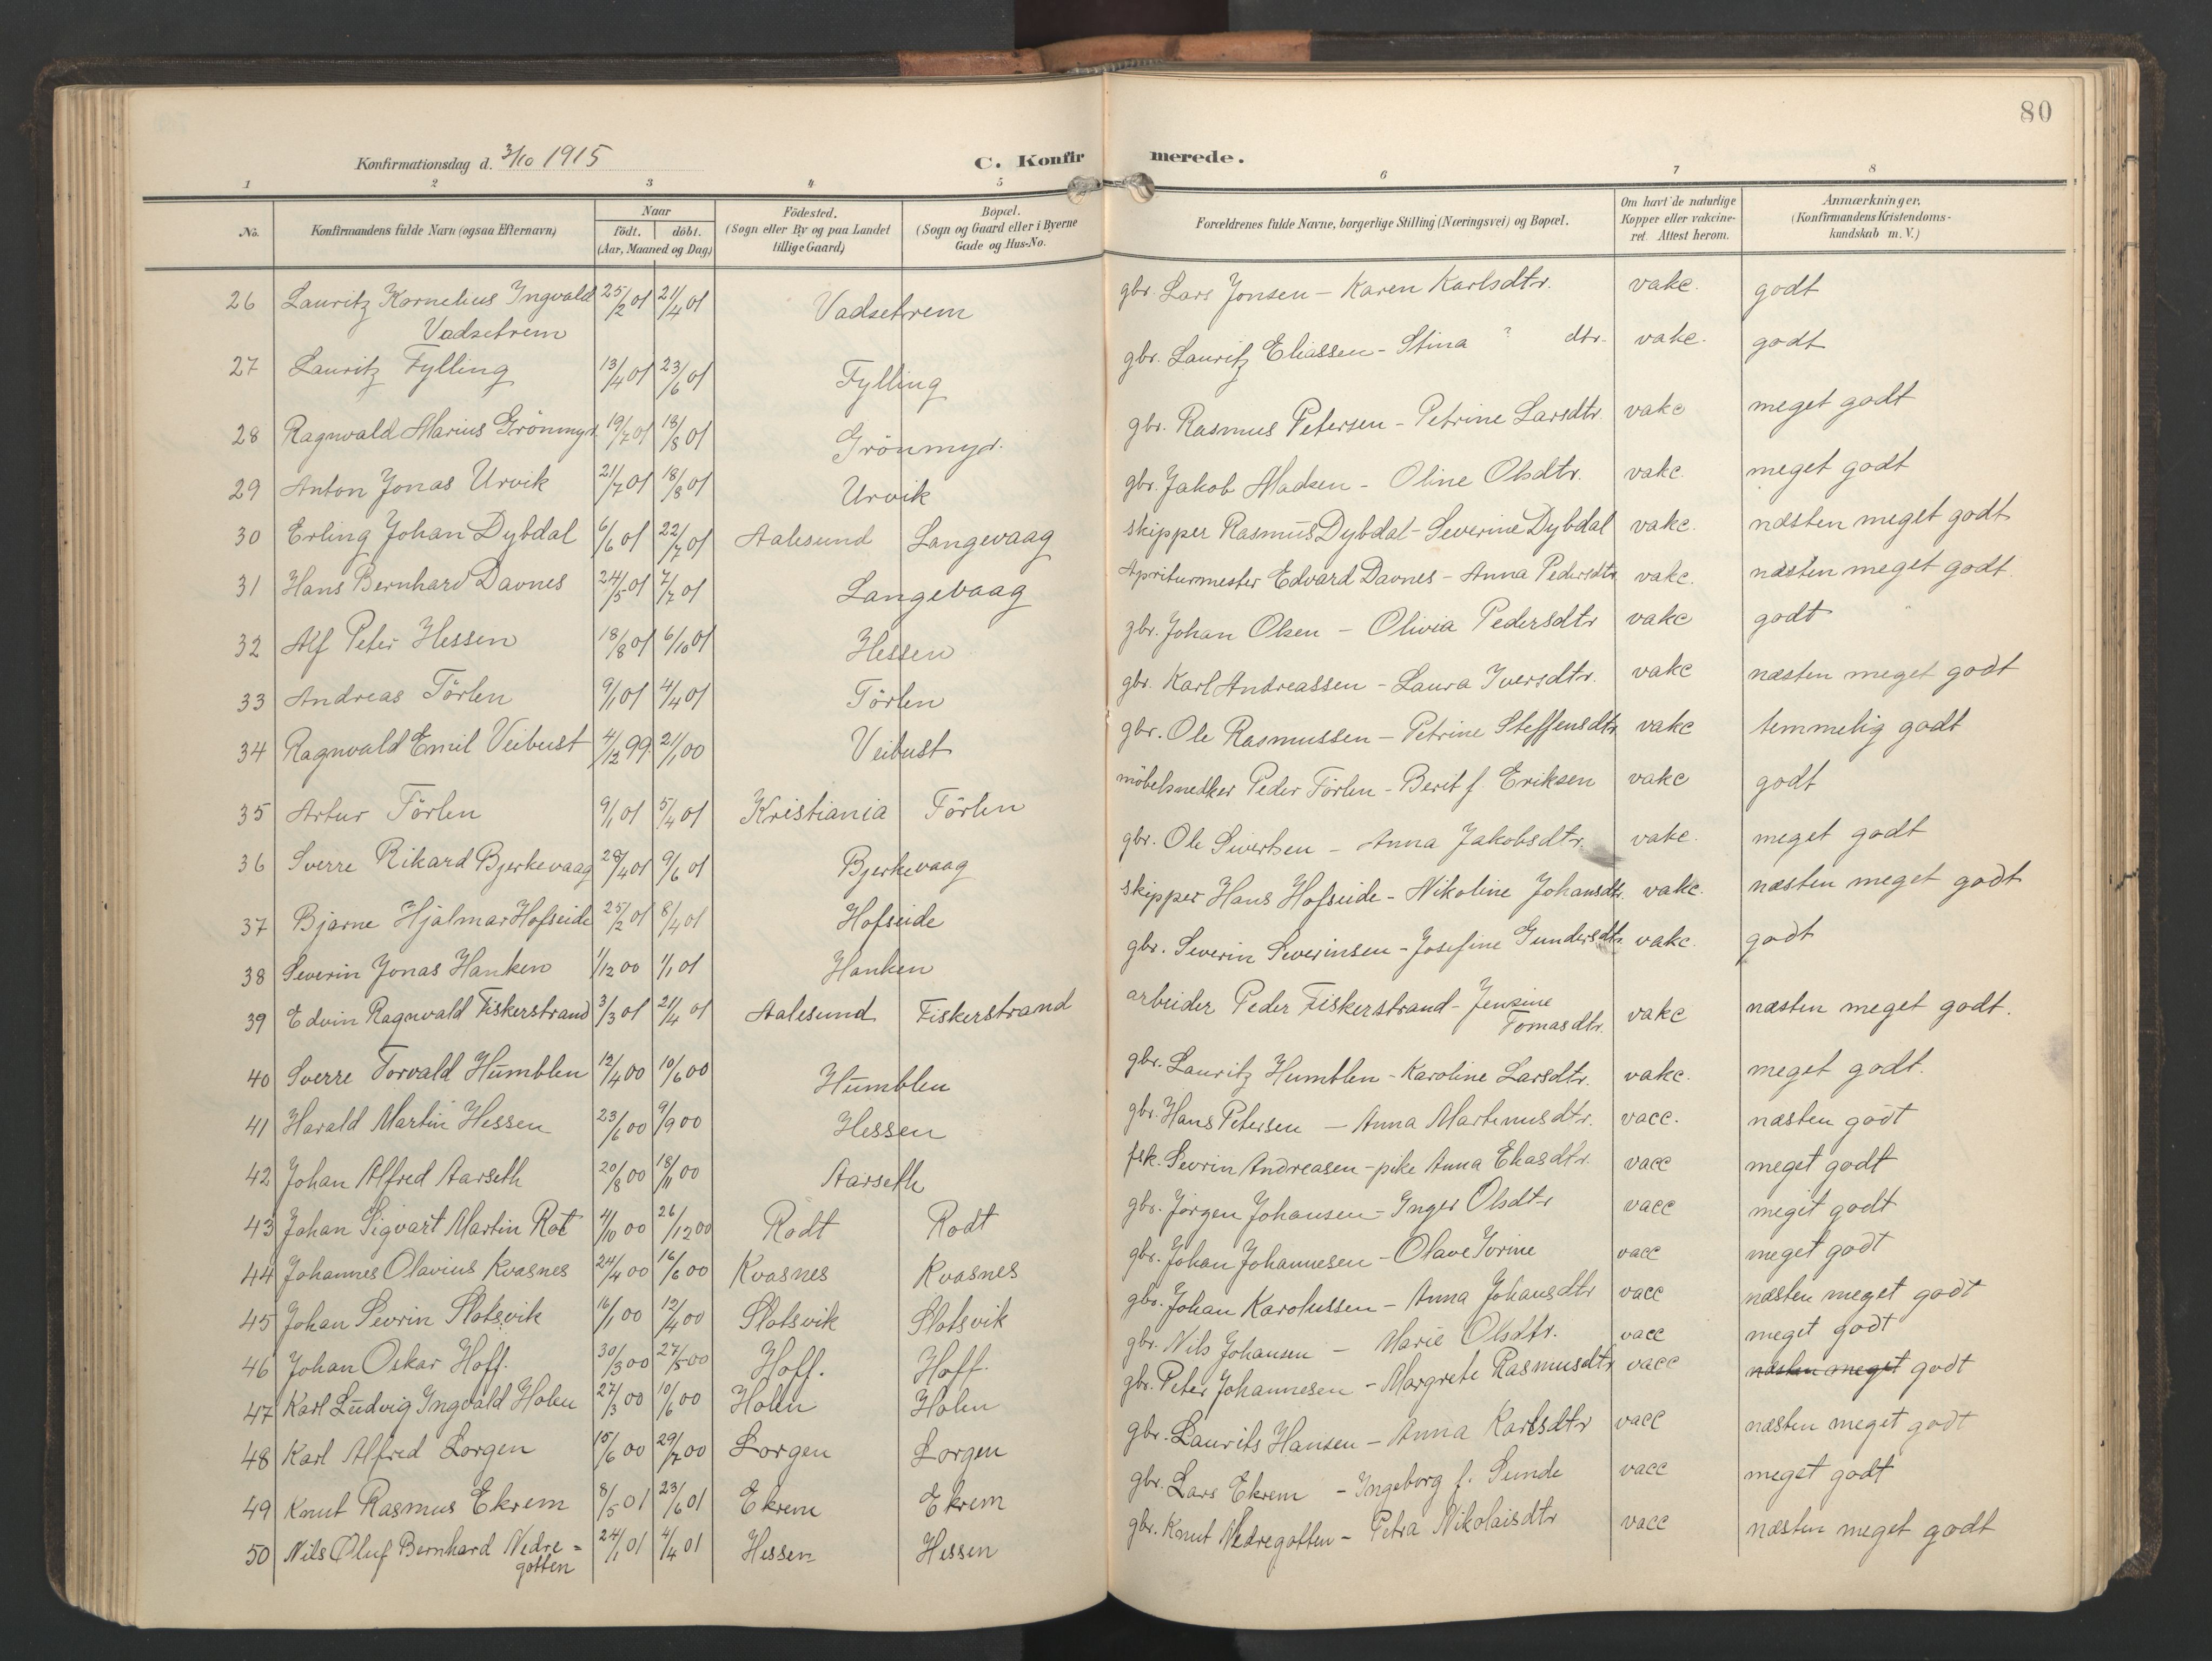 80
Konfirmationsdag d. 3/10 1915
C. Konfirmerede.
1 2 3 4 5 6 7 8
No. Konfirmandens fulde Navn (ogsaa Efternavn) Naar født. døbt. (Aar, Maaned og Dag) Fødested. (Sogn eller By og paa Landet tillige Gaard) Bopæl. (Sogn og Gaard eller i Byerne Gade og Hus-No. Forældrenes fulde Navne, borgerlige Stilling (Næringsvei) og Bopæl. Om havt de naturlige Kopper eller vakcineret. Attest herom. Anmærkninger. (Konfirmandens Kristendomskundskab m. V.)
26 Lauritz Kornelius Ingvald Vadsetrem 25/2 01 21/4 01 Vadsetrem gbr. Lars Jonsen - Karen Karlsdtr. vakc. godt
27 Lauritz Fylling 13/4 01 23/6 01 Fylling gbr. Lauritz Eliassen - Stina ? dtr. vakc. godt
28 Ragnvald Marius Grönmyr 19/7 01 18/8 01 Grönmyr. gbr. Rasmus Petersen - Petrine Larsdtr. vakc meget godt
29 Anton Jonas Urvik 21/7 01 18/8 01 Urvik gbr. Jakob Madsen - Oline Olsdtr. vakc. meget godt
30 Erling Johan Dybdal 6/6 01 22/7 01 Aalesund Langevaag skipper Rasmus Dybdal - Severine Dybdal vakc. næsten meget godt
31 Hans Bernhard Davnes 24/5 01 7/7 01 Langevaag Apriturmester Edvard Davnes - Anna Pedersdtr. vakc. næsten meget godt.
32 Alf Peter Hessen 18/8 01 6/10 01 Hessen gbr. Johan Olsen - Olivia Pedersdtr vakc godt
33 Andreas Törlen 9/1 01 4/4 01 Törlen gbr. Karl Andreassen - Laura Iversdtr. vakc næsten meget godt
34 Ragnvald Emil Veibust 4/12 99 21/1 00 Veibust gbr. Ole Rasmussen - Petrine Steffensdtr. vakc temmelig godt
35 Artur Törlen 9/1 01 5/4 01 Kristiania Törlen möbelsnedker Peder Törlen - Berit f. Eriksen vakc godt
36 Sverre Rikard Bjerkevaag 28/4 01 9/6 01 Bjerkevaag gbr. Ole Sivertsen - Anna Jakobsdtr. vakc. meget godt
37 Bjarne Hjalmar Hofseide 25/2 01 8/4 01 Hofseide skipper Hans Hofseide - Nikoline Johansdtr. vakc. næsten meget godt
38 Severin Jonas Hanken 1/12 00 1/1 01 Hanken gbr. Severin Severinsen - Josefine Gundersdtr. vakc. godt
39 Edvin Ragnvald Fiskerstrand 3/3 01 21/4 01 Aalesund Fiskerstrand arbeider Peder Fiskerstrand - Jensine Tomasdtr. vakc næsten meget godt.
40 Sverre Torvald Humblen 12/4 00 10/6 00 Humblen gbr. Lauritz Humblen - Karoline Larsdtr. vakc. meget godt.
41 Harald Martin Hessen 23/6 00 9/9 00 Hessen gbr. Hans Petersen - Anna Martinusdtr. vacc. næsten godt
42 Johan Alfred Aarseth 20/8 00 18/11 00 Aarseth fsk. Sevrin Andreasen - pike Anna Eliasdtr. vacc meget godt
43 Johan Sigvart Martin Rot 4/10 00 26/12 00 Rodt Rodt gbr. Jørgen Johansen - Inger Olsdtr vacc meget godt
44 Johannes Olavius Kvasnes 24/4 00 16/6 00 Kvasnes Kvasnes gbr. Johan Johannesen - Olave Ivrine vacc meget godt
45 Johan Sevrin Slotsvik 16/1 00 12/4 00 Slotsvik Slotsvik gbr. Johan Karolussen - Anna Johansdtr vacc næsten meget godt
46 Johan Oskar Hoff. 30/3 00 27/5 00 Hoff. Hoff. gbr. Nils Johansen - Marie Olsdtr. vacc meget godt
47 Karl Ludvig Ingvald Holen 27/3 00 10/6 00 Holen Holen gbr. Peter Johannesen - Margrete Rasmusdtr vacc næsten meget godt
48 Karl Alfred Lorgen 15/6 00 29/7 00 Lorgen Lorgen gbr. Laurits Hansen - Anna Karlsdtr vacc næsten meget godt
49 Knut Rasmus Ekrem 8/5 01 23/6 01 Ekrem Ekrem gbr. Lars Ekrem - Ingeborg f. Sunde vacc meget godt
50 Nils Oluf Bernhard Nedregotten 24/1 01 4/4 01 Hessen Hessen gbr. Knut Nedregotten - Petra Nikolaisdtr vacc næsten meget godt